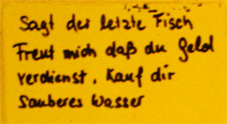 Sagt der letzte Fisch
Freut mich daß du Geld
verdienst. Kauf dir
Sauberes Wasser